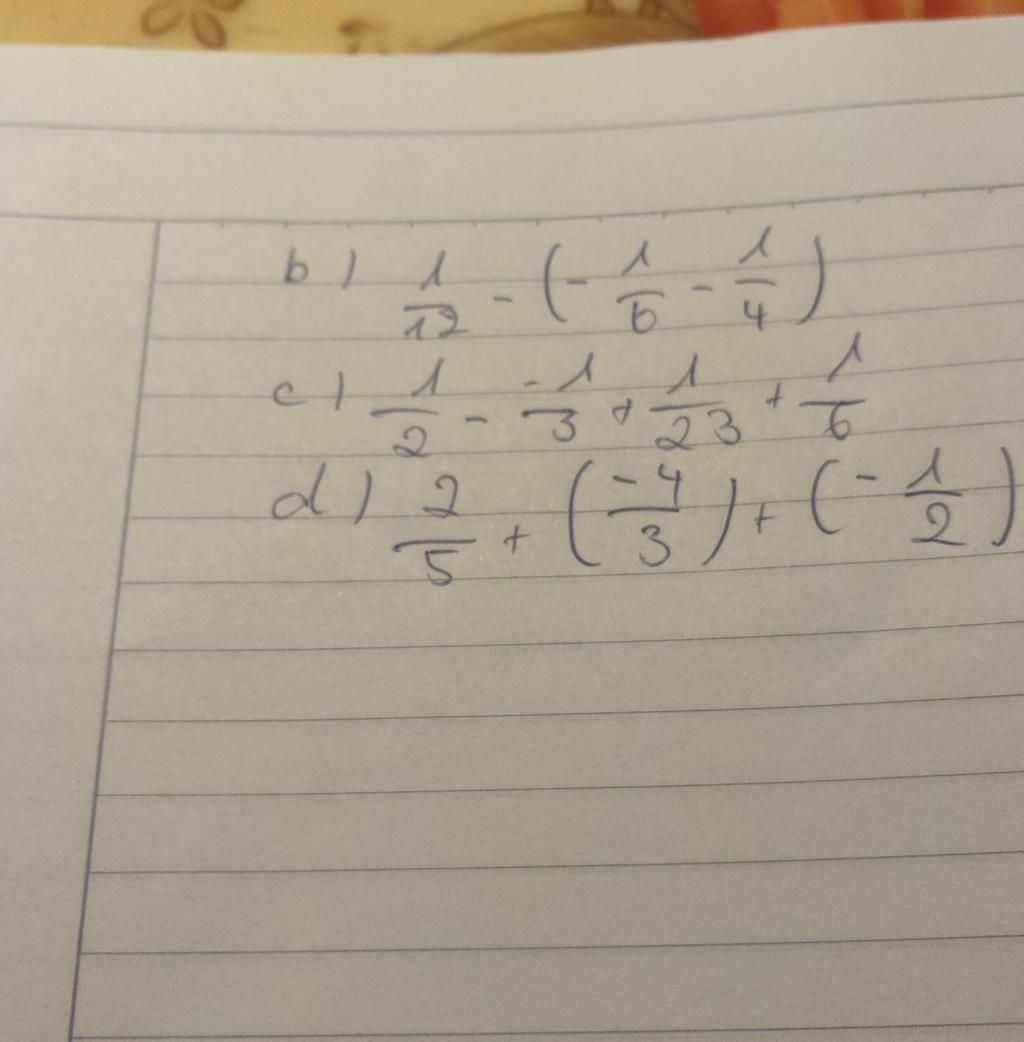 b) 1/12 - (- 1/6 - 1/4)
c) 1/2 - -1/3 + 1/23 + 1/6
d) 2/5 + (-4/3) + (- 1/2)